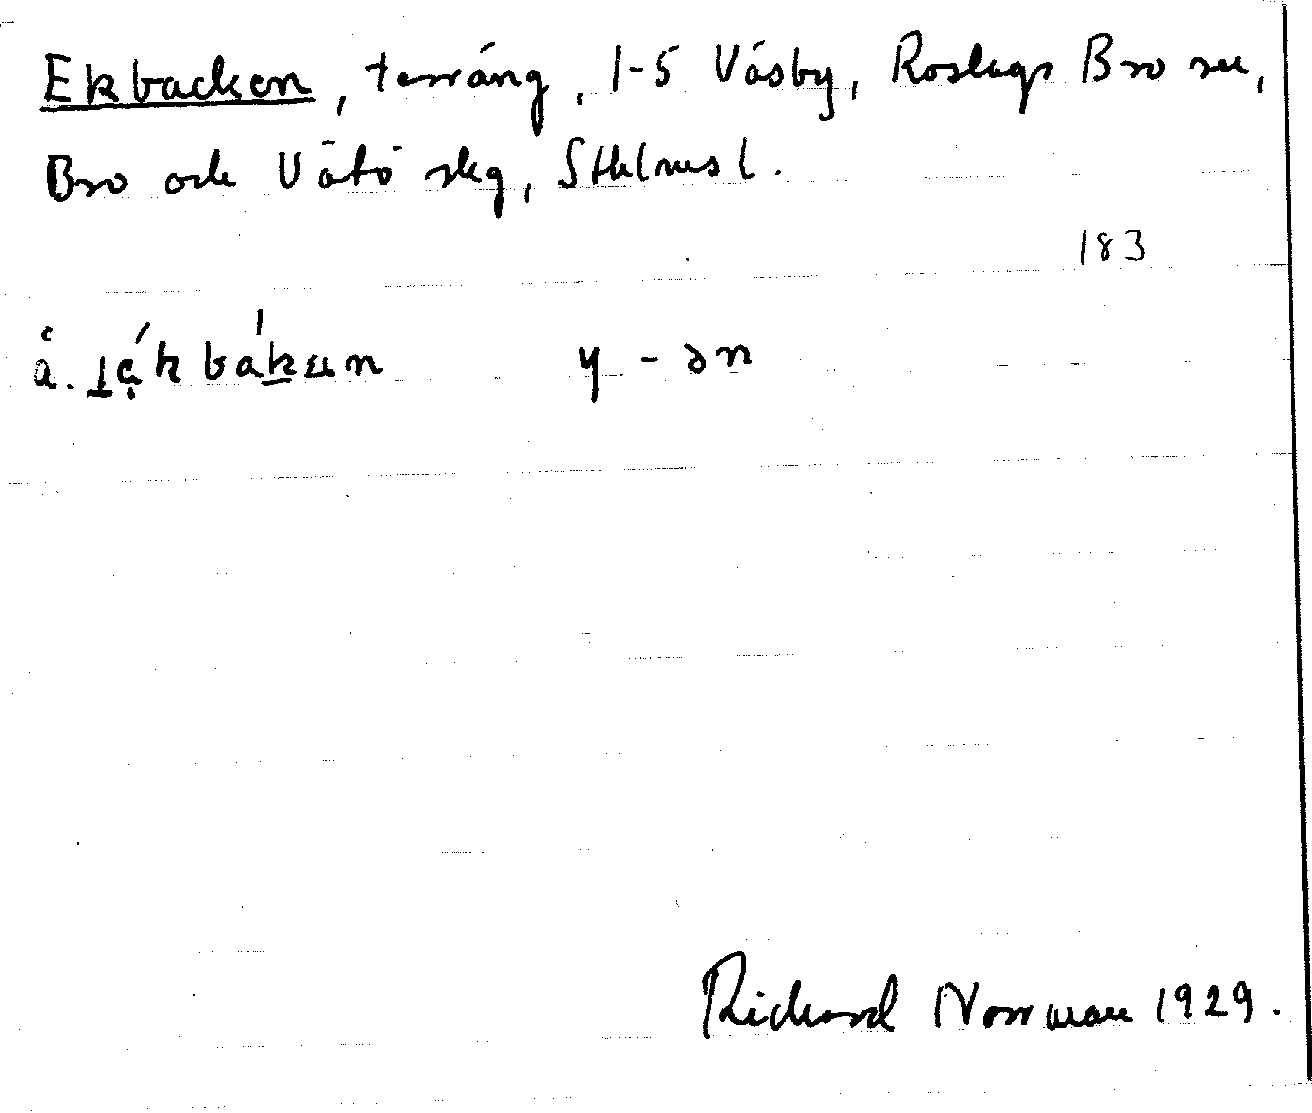 Ekbacken, terräng, 1-5 Väsby, Roslags Bro sn,
Bro och Vätö skg, Sthlms l.
183
å. 
y - ən
Richard Norrman 1929.